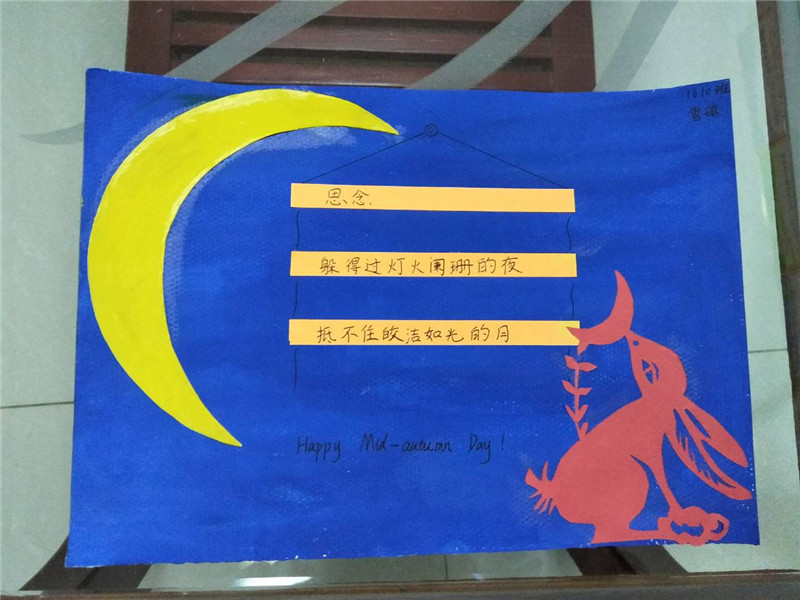 1610班
思念
躲得过灯火阑珊的夜
抵不住皎洁如光的月
Happy Mid-autumn Day!